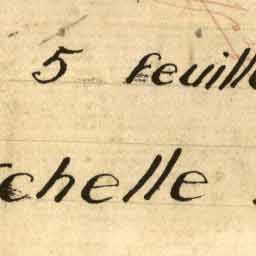 5 feuille
chelle